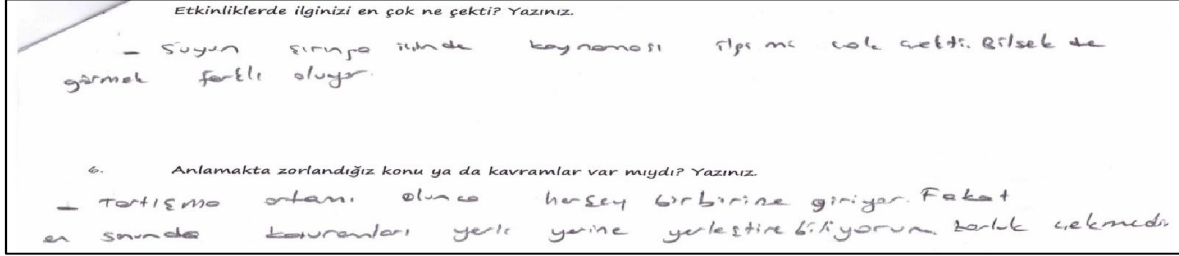 Etkinliklerde ilginizi en çok ne çekti? Yazınız.
- Suyun şırınga içinde kaynaması ilgimi çok çekti. Bilsek de
görmek farklı oluyor.
6. Anlamakta zorlandığız konu ya da kavramlar var mıydı? Yazınız.
- Tartışma ortamı olunca herşey birbirine giriyor. Fakat
en sonunda kavramları yerli yerine yerleştirebiliyorum. zorluk çekmedi.